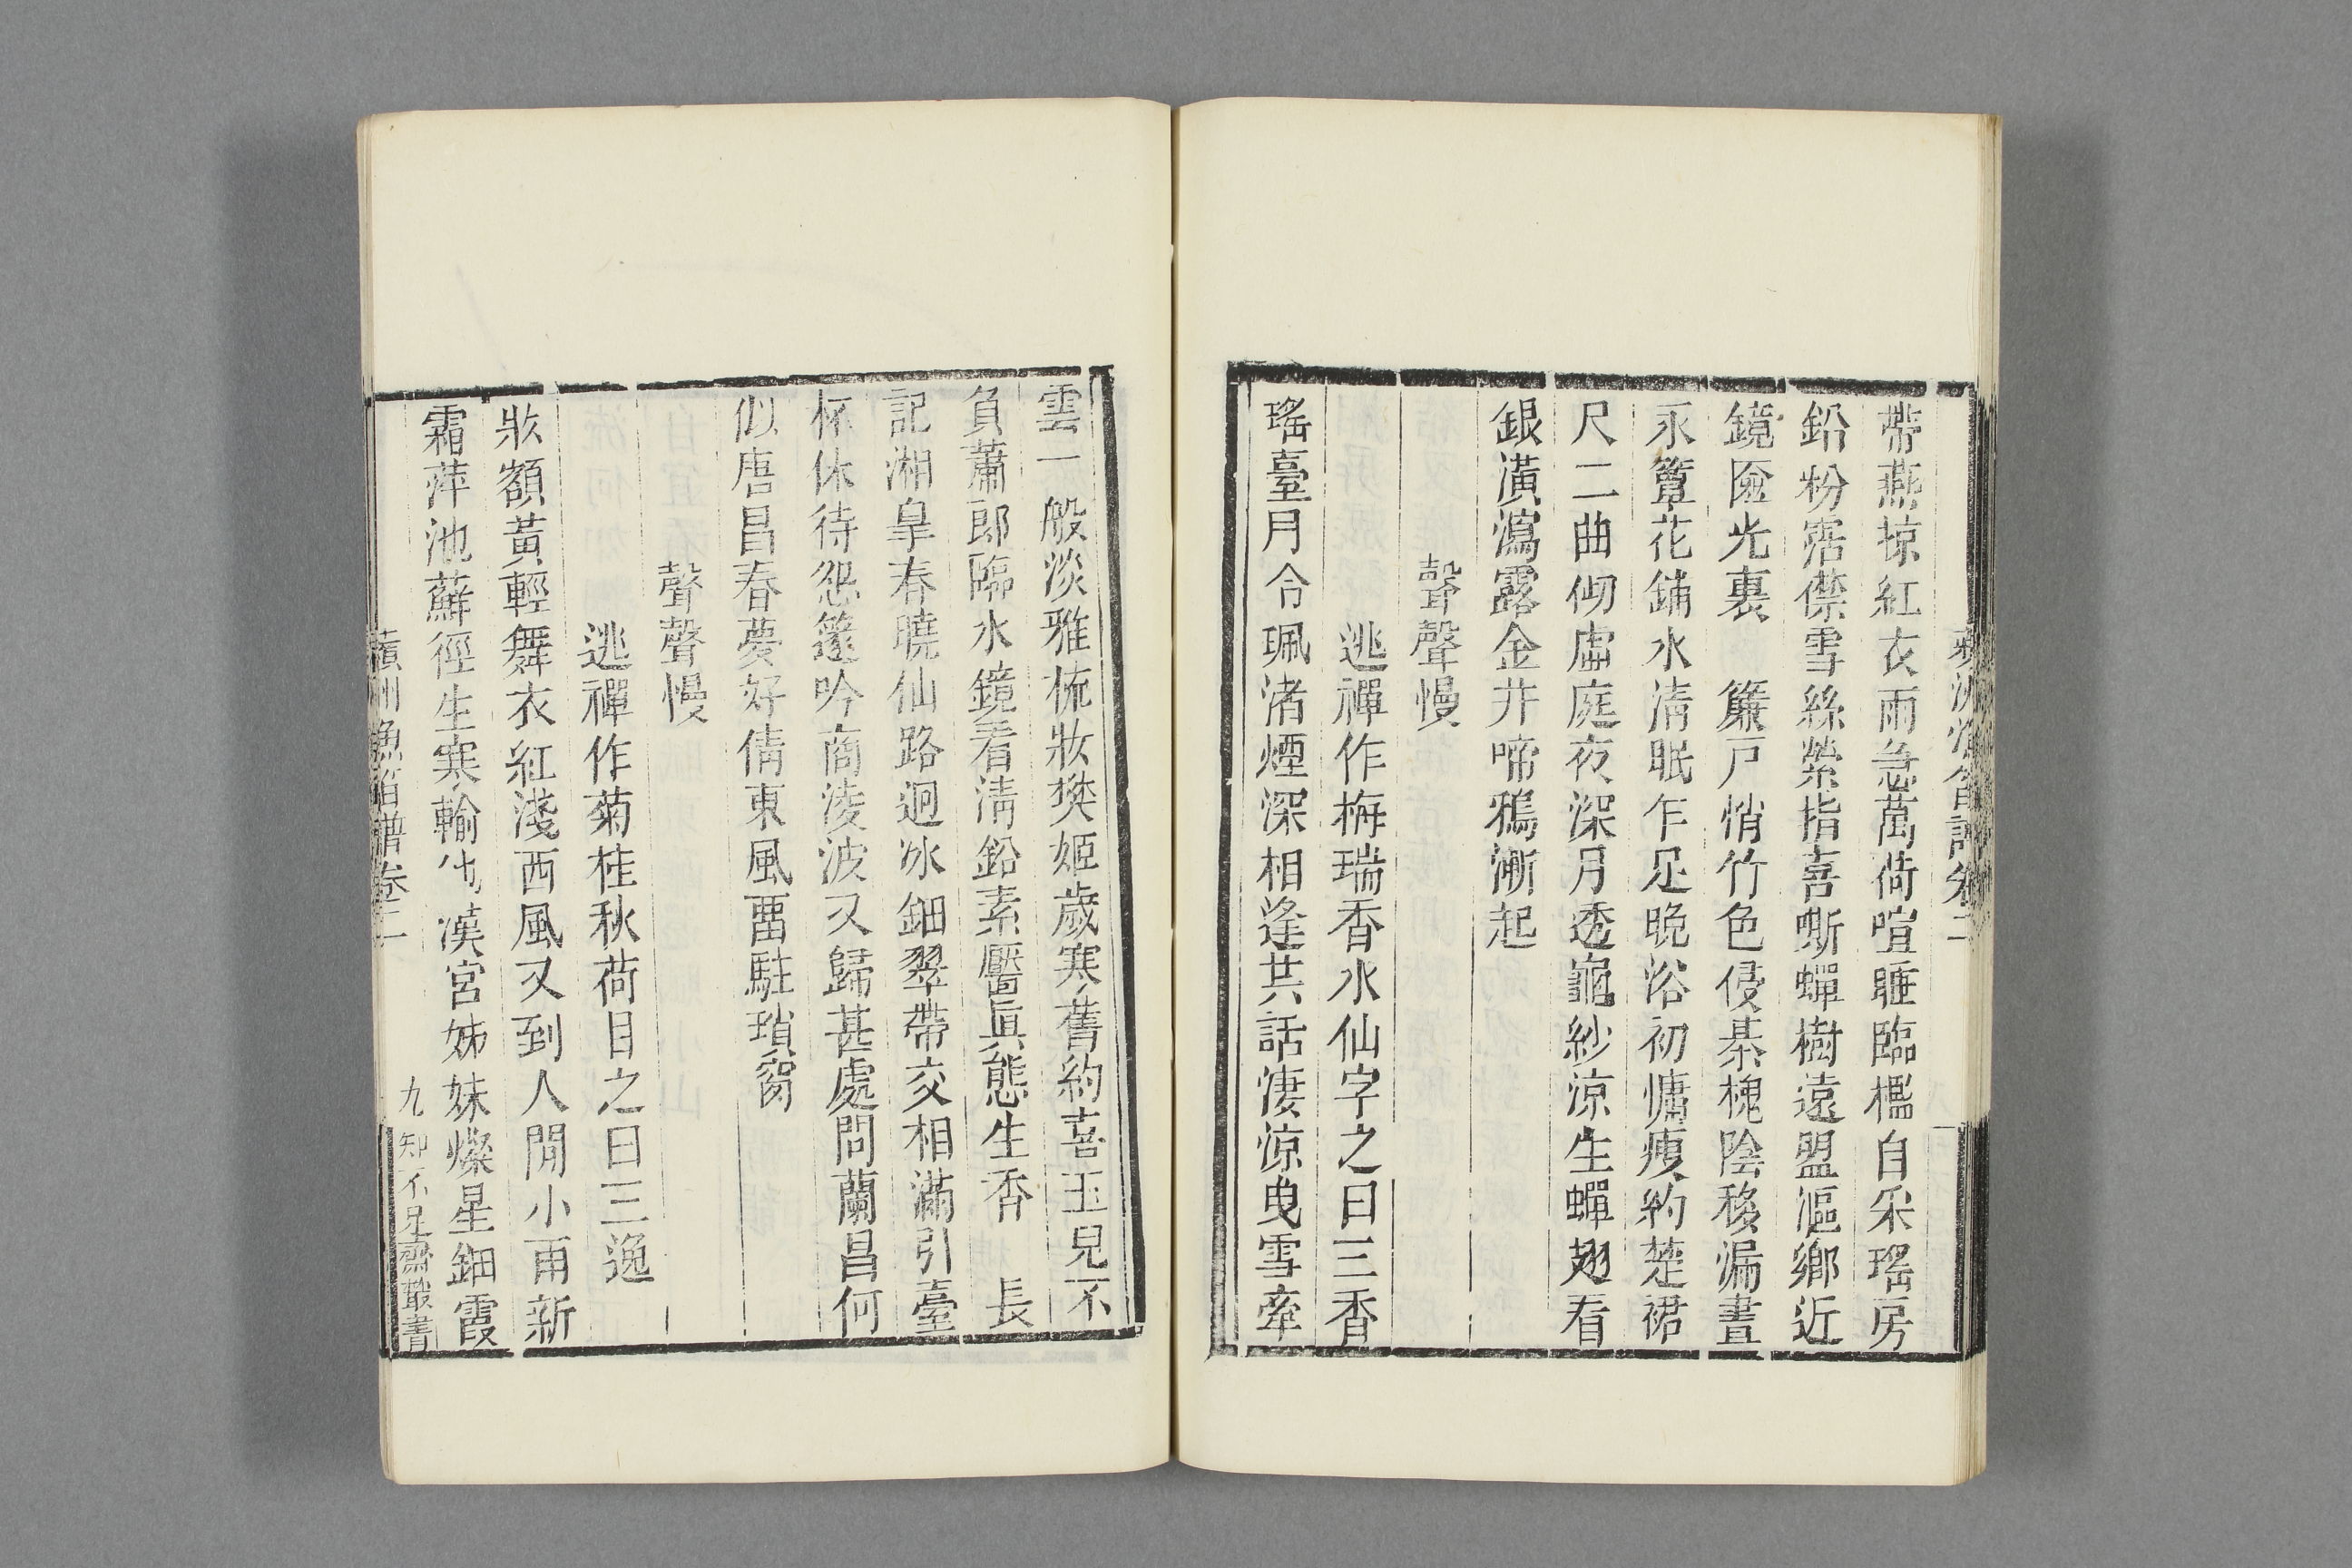 帶燕掠紅衣雨急萬荷喧睡臨檻自采瑤房
鉛粉霑襟雪絲縈指喜嘶蟬樹遠盟漚鄉近
鏡匳光裏　簾戶悄竹色侵棊槐陰移漏晝
永簟花鋪水清眠乍足晚浴初慵瘦約楚裙
尺二曲彴虛庭夜深月透龜紗涼生蟬翅看
銀潢瀉露金井啼鴉漸起
聲聲慢
逃禪作梅瑞香水仙字之曰三香
瑤臺月冷珮渚煙深相逢共話淒涼曳雪牽
雲一般淡雅梳妝樊姬歲寒舊約喜玉兒不
負蕭郎臨水鏡看清鉛素靨眞態生香　長
記湘皐春曉仙路迥冰鈿翠帶交相滿引臺
杯休待怨篴吟商淩波又歸甚處問蘭昌何
似唐昌春夢好倩東風畱駐瑣窗
聲聲慢
逃禪作菊桂秋荷目之曰三逸
妝額黃輕舞衣紅淺西風又到人間小雨新
霜萍池蘚徑生寒輸他漢宮姊妹燦星鈿霞
蘋洲漁笛譜卷二
九
知不足齋叢書